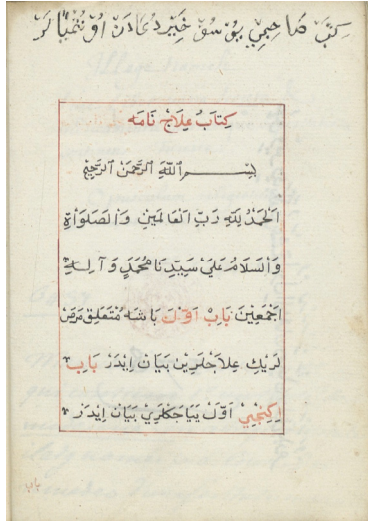 كِتَابُ عِلَاجْ نَامَه
بِسْمِ اللّٰهِ الرَّحْمٰنِ الرَّحِيْمِ
اَلْحَمْدُ لِلّٰهِ رَبِّ الْعَالَمِينِ وَالصَّلَوَاةِ
وَالسَّلَامُ عَلَيٰ سَيِّدِنَا مُحَمَّدٍ وَآلِهِ
اَجْمَعِيْنَ بَابِ اَوَّلْ بَاشَه مُتَعَلِّقْ مَرَضْ
لَرِيْكِ عِلَاجْلَرِيْن بَيَانْ اِيْدَرْ بَابِ
اِكِنْجِيْ اَوَّلْ يَيَاجَكْلَرِيْ بَيَانْ اِيْدَرْ